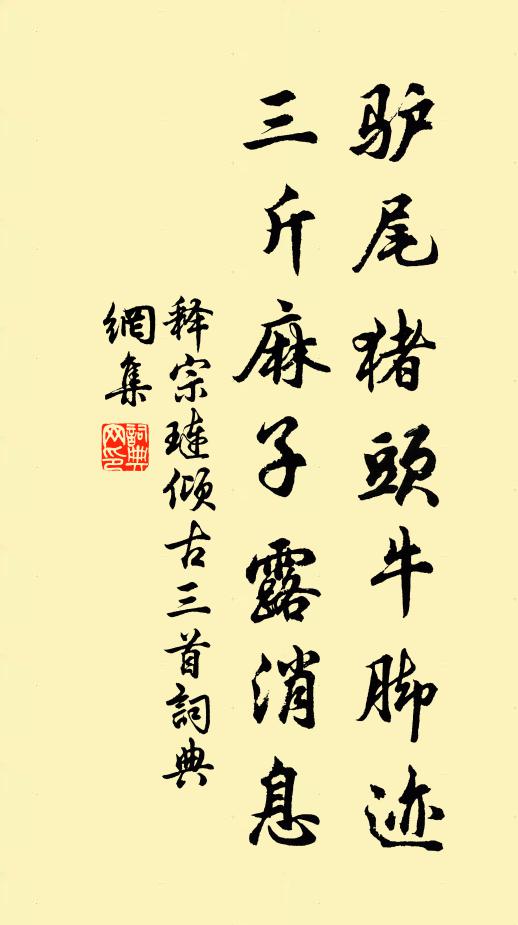 驴尾猪頭牛脚迹
三斤麻子露消息
释宗琏倾古三首詞典
網集
詞典
网印